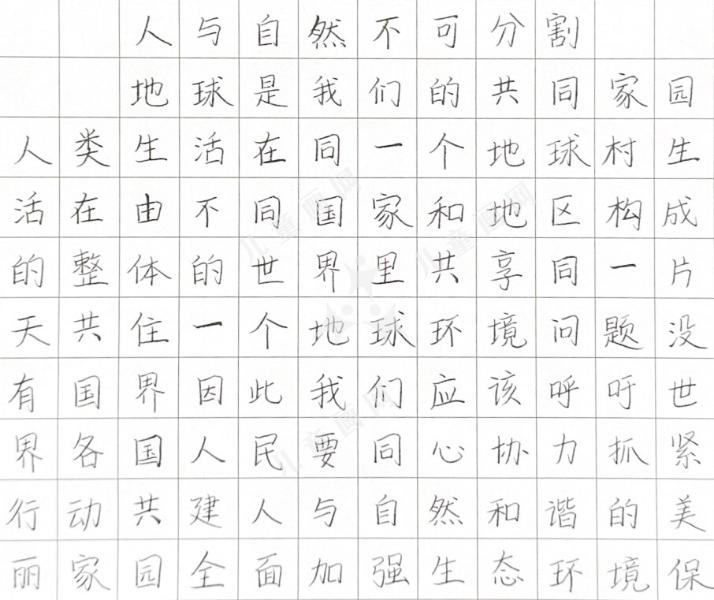 人与自然不可分割
地球是我们的共同家园
人类生活在同一个地球村生
活在由不同国家和地区构成
的整体的世界里共享同一片
天共住一个地球环境问题没
有国界因此我们应该呼吁世
界各国人民要同心协力抓紧
行动共建人与自然和谐的美
丽家园全面加强生态环境保
儿童画网
儿童画网
儿童画网